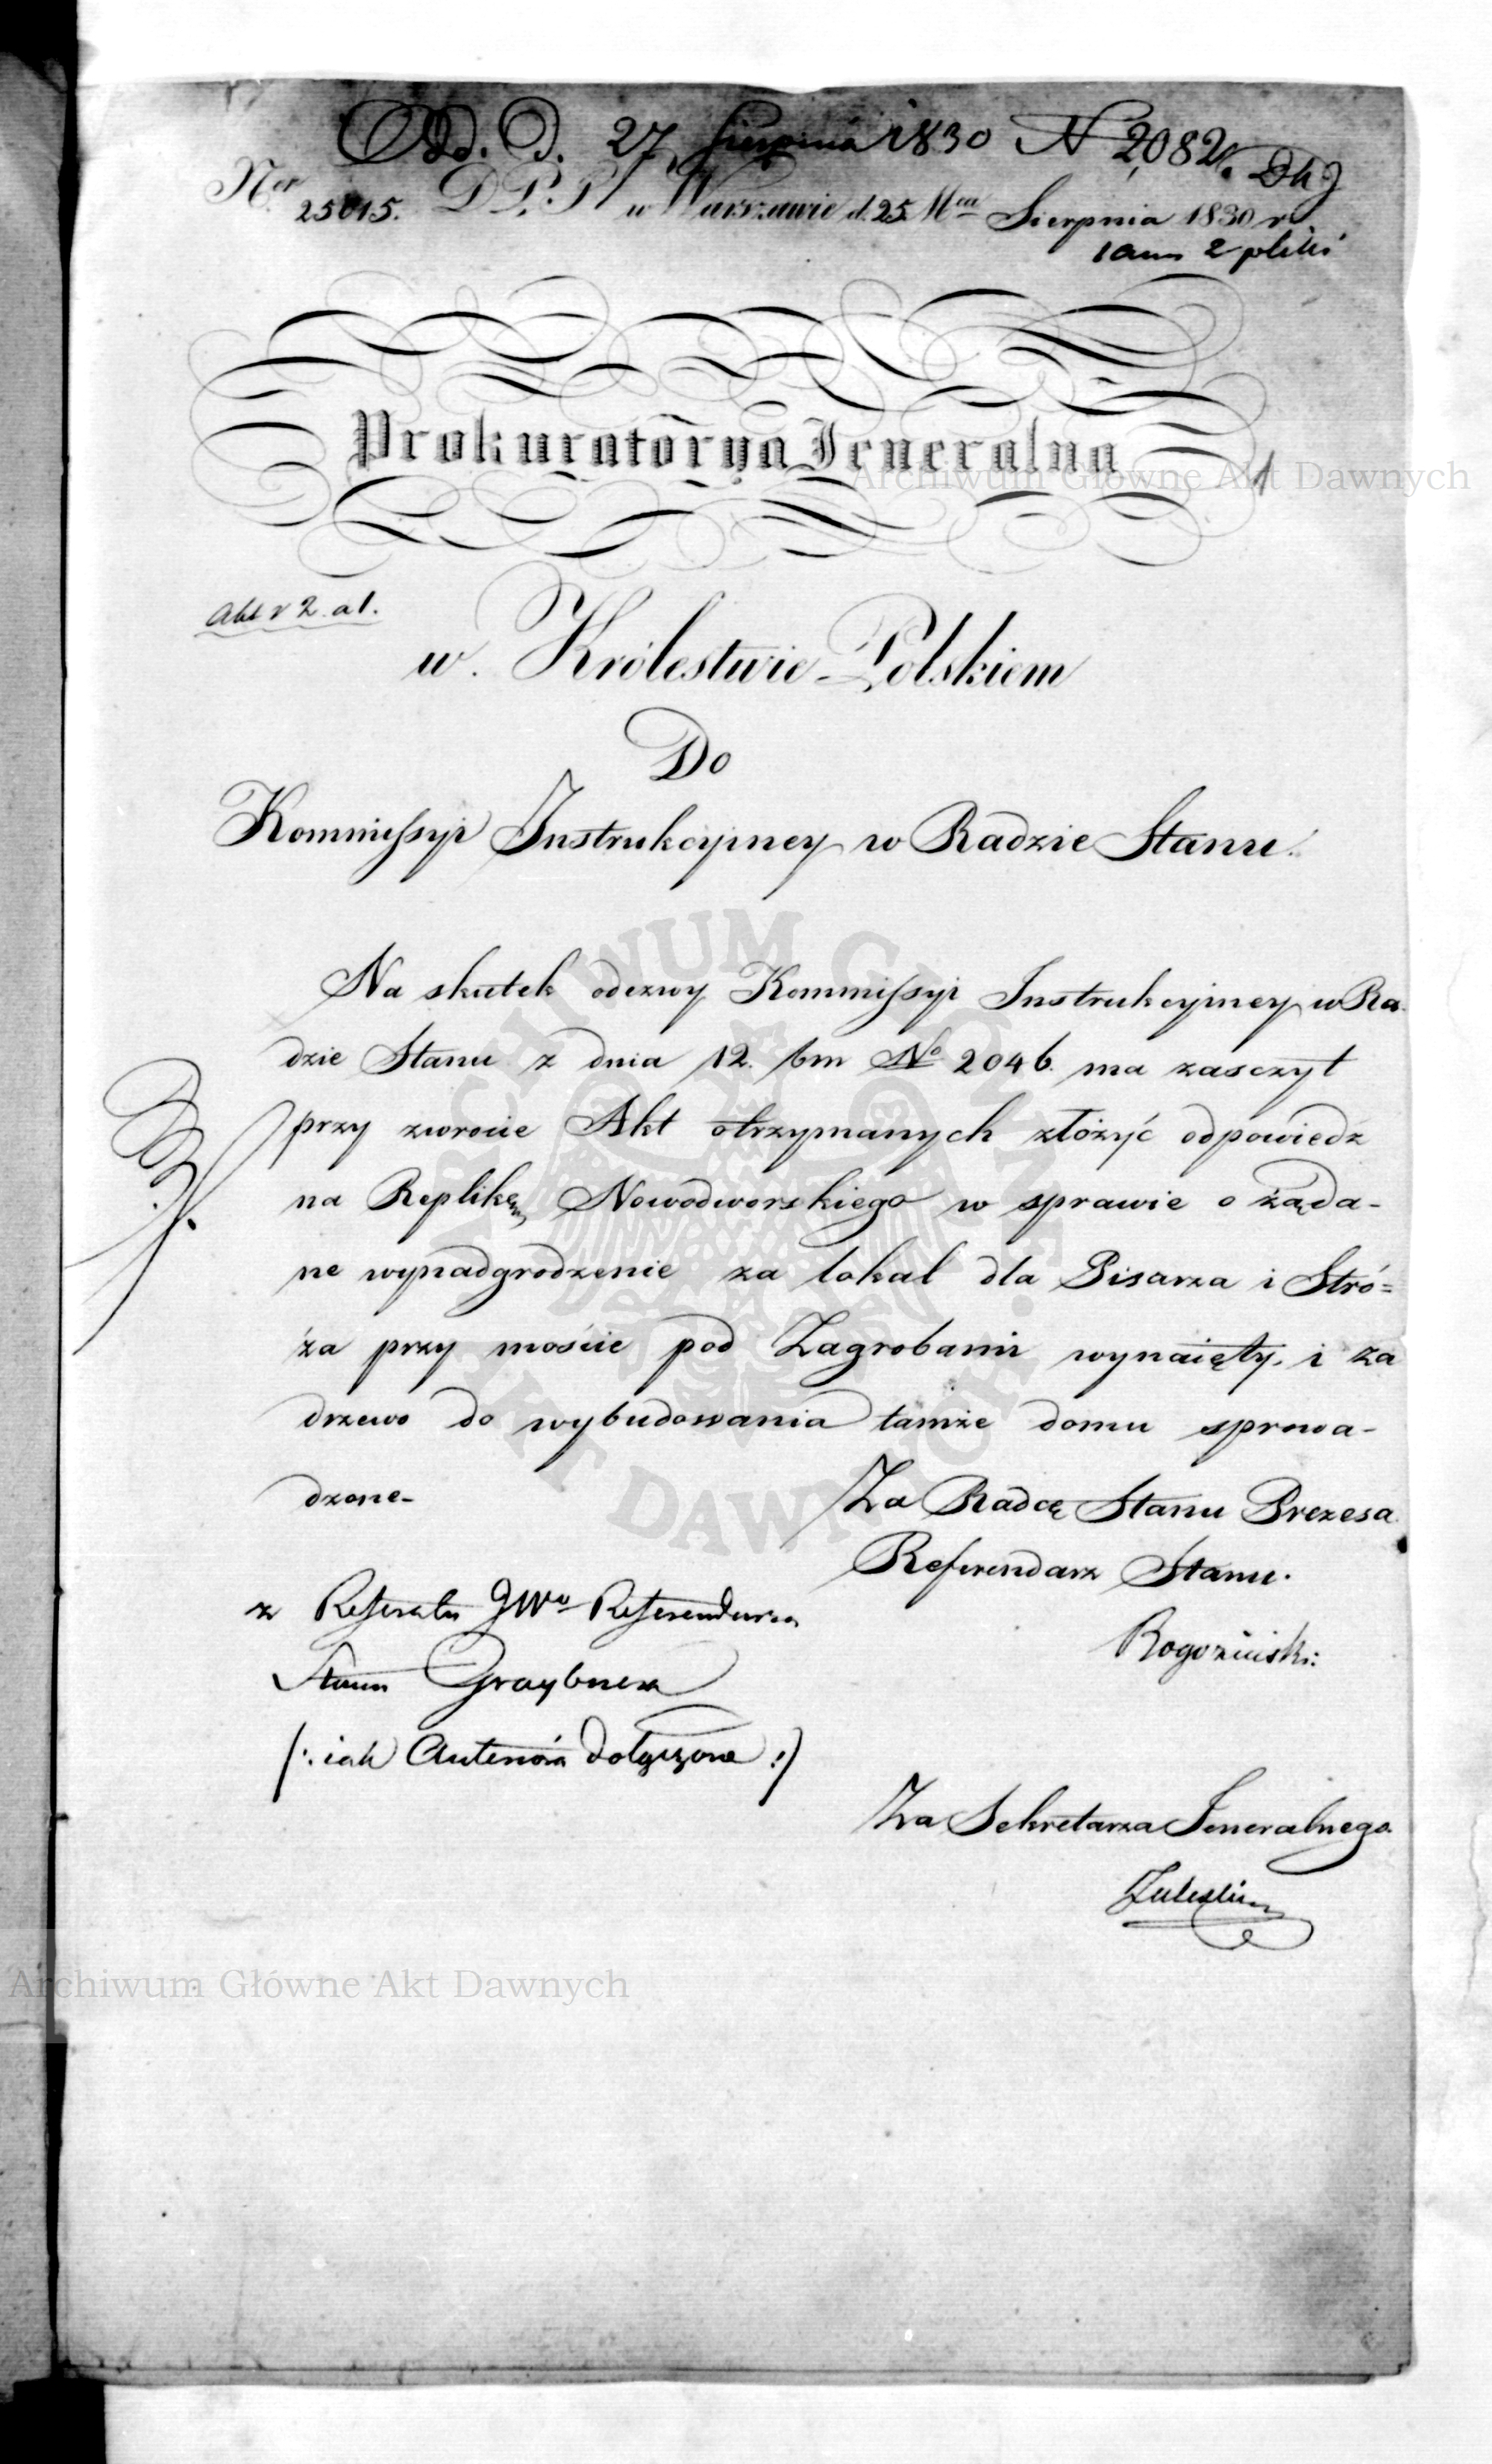 Odd. D. 27 Sierpnia 1830 N 2082
Ner 25015. D.P.P. w Warszawie d. 25 Mca Sierpnia 1830 r.
Prokuratorya Jeneralna
1
Archiwum Główne Akt Dawnych
w Królestwie Polskiem
Do
Kommissyi Instrukcyiney w Radzie Stanu.
Na skutek odezwy Kommissyi Instrukcyiney w Ra-
dzie Stanu z dnia 12. bm No 2046. ma zasczyt
przy zwrocie Akt otrzymanych złożyć odpowiedz
na Replikę Nowodworskiego w sprawie o żąda-
ne wynadgrodzenie za lokal dla Pisarza i Stró=
ża przy moście pod Zagrobami wynaięty, i za
drzewo do wybudowania tamże domu sprowa-
dzone-
Za Radcę Stanu Prezesa
Referendarz Stanu.
Rogoziński
z Referatu JWo Referendarza
Stanu Graybnera
(: iak Autenów dołączone :)
Za Sekretarza Jeneralnego
Archiwum Główne Akt Dawnych
ARCHIWUM GŁÓWNE AKT DAWNYCH